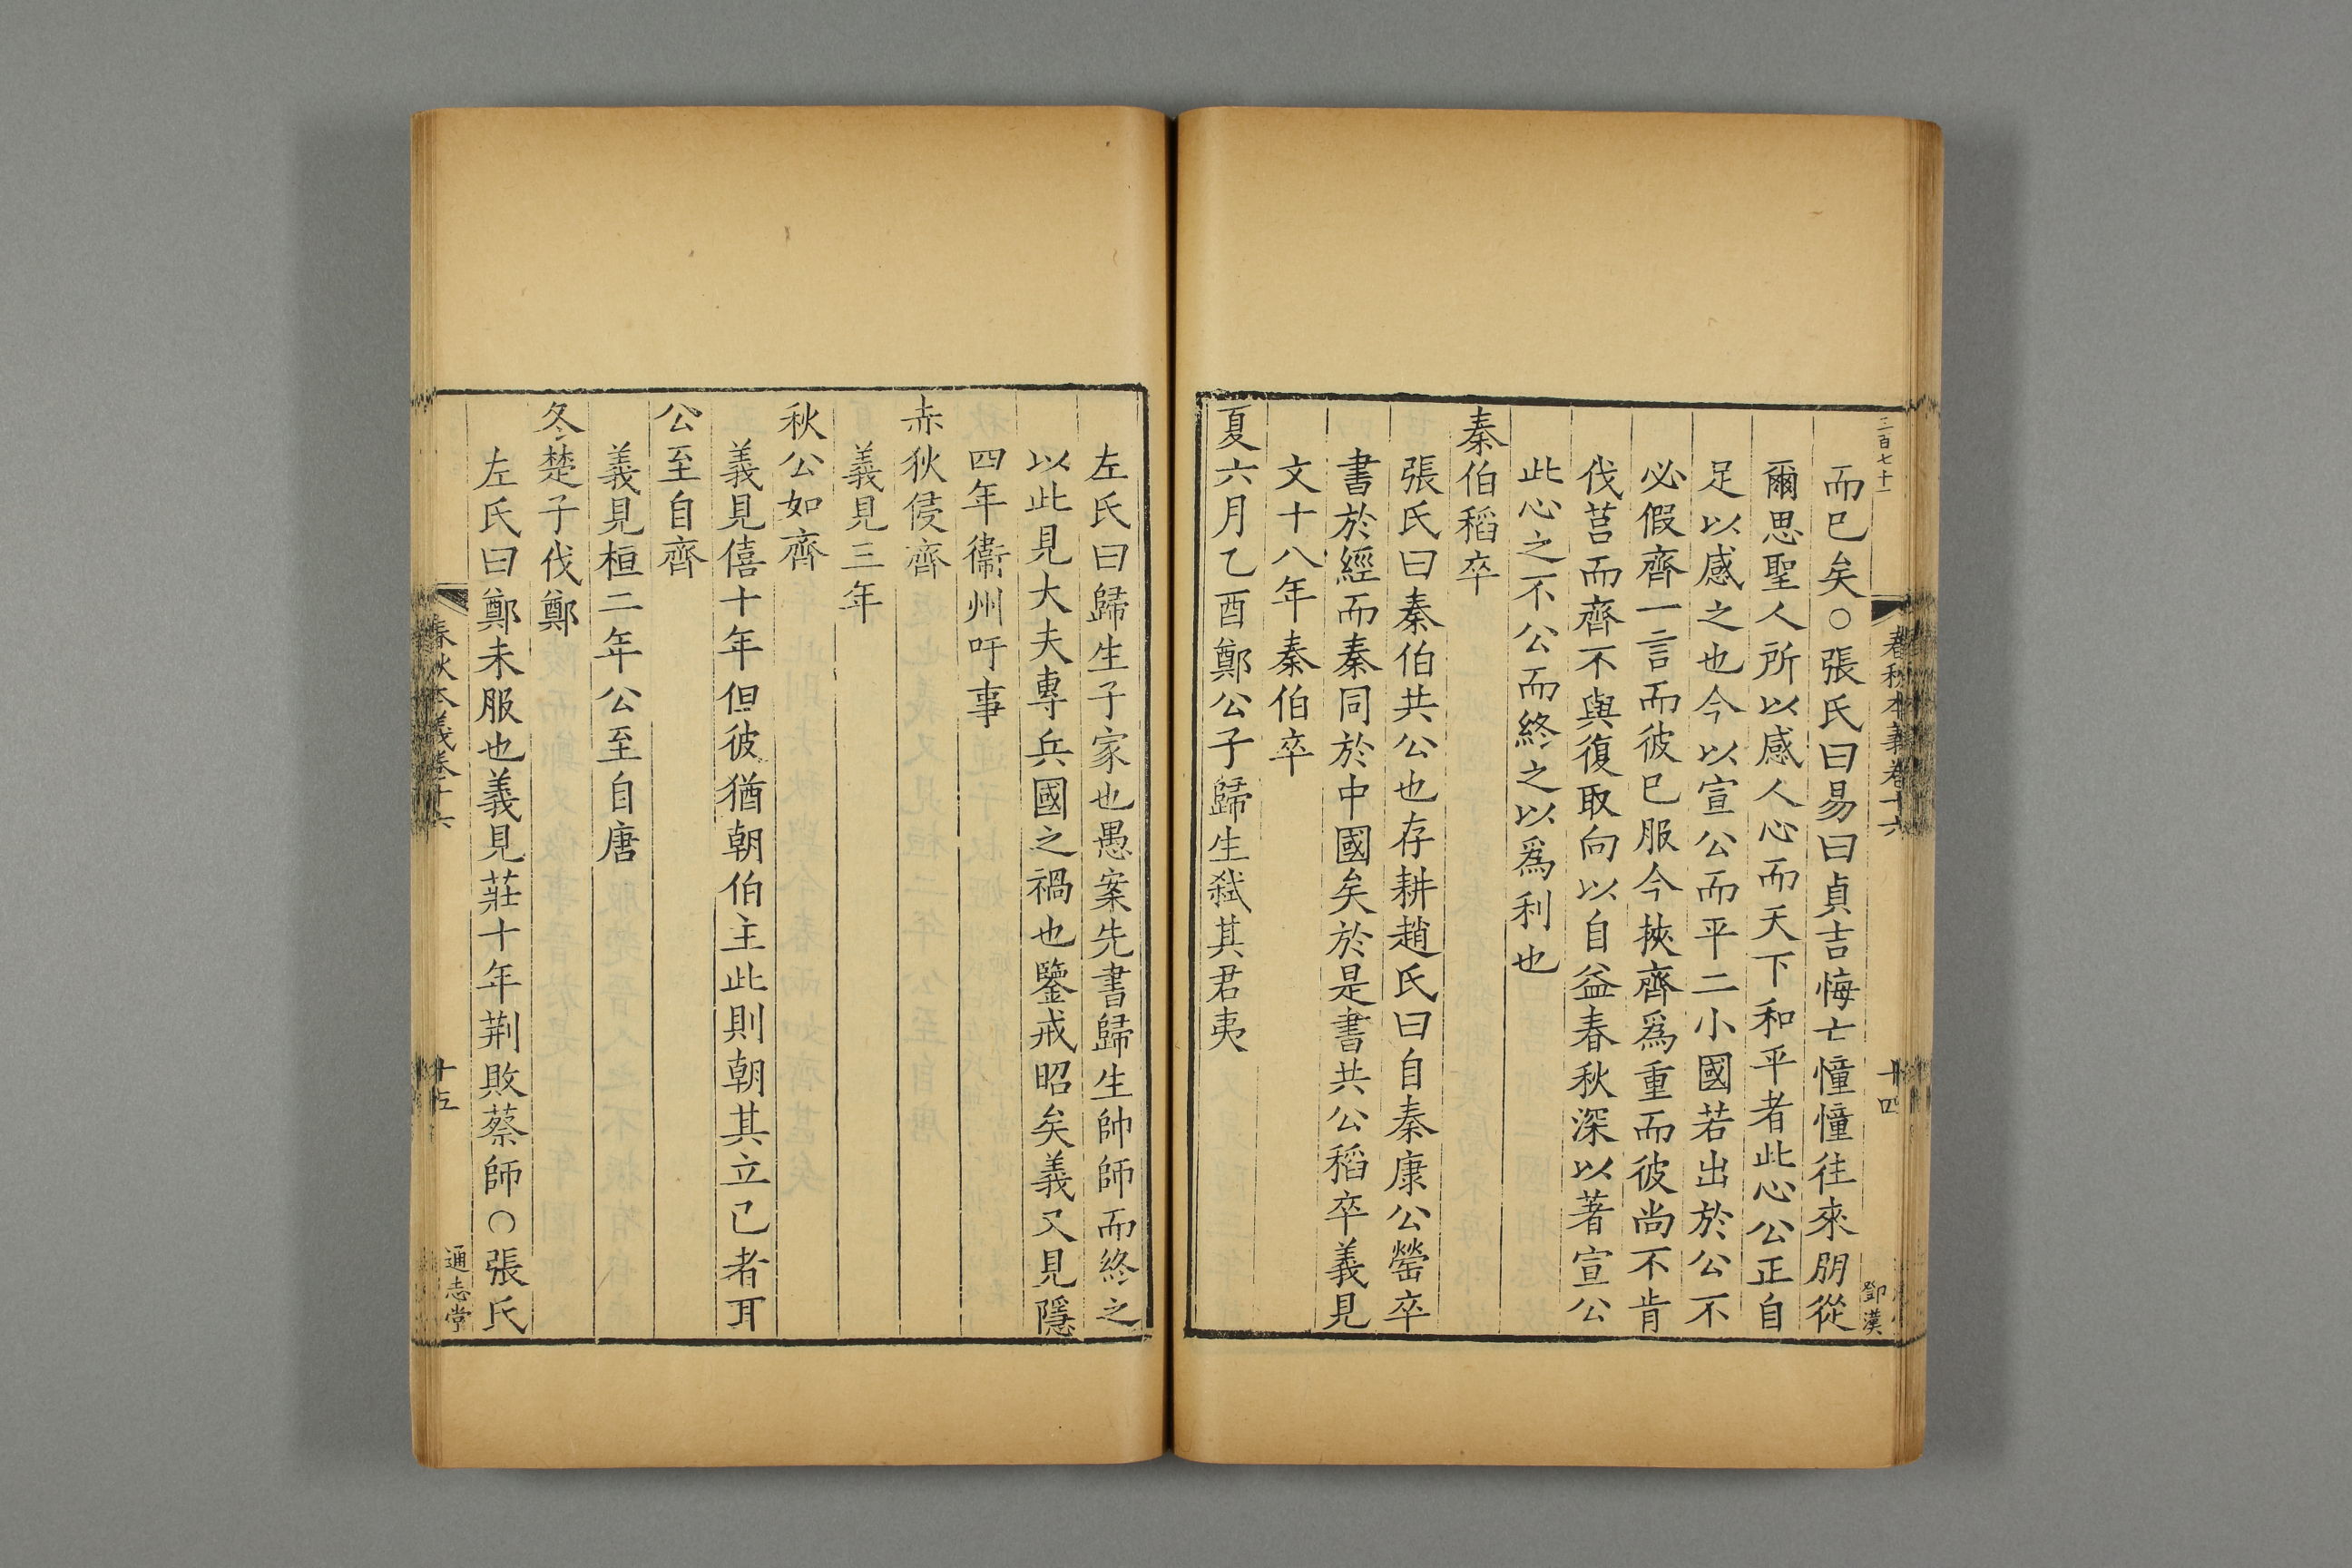 三百七十一
春秋本義卷十六
十四
鄧漢
而已矣○張氏曰易曰貞吉悔亡憧憧往來朋從
爾思聖人所以感人心而天下和平者此心公正自
足以感之也今以宣公而平二小國若出於公不
必假齊一言而彼已服今挾齊爲重而彼尚不肯
伐莒而齊不與復取向以自益春秋深以著宣公
此心之不公而終之以爲利也
秦伯稻卒
張氏曰秦伯共公也存耕趙氏曰自秦康公罃卒
書於經而秦同於中國矣於是書共公稻卒義見
文十八年秦伯卒
夏六月乙酉鄭公子歸生弑其君夷
左氏曰歸生子家也愚案先書歸生帥師而終之
以此見大夫專兵國之禍也鑒戒昭矣義又見隱
四年衞州吁事
赤狄侵齊
義見三年
秋公如齊
義見僖十年但彼猶朝伯主此則朝其立己者耳
公至自齊
義見桓二年公至自唐
冬楚子伐鄭
左氏曰鄭未服也義見莊十年荆敗蔡師○張氏
春秋本義卷十六
十五
通志堂